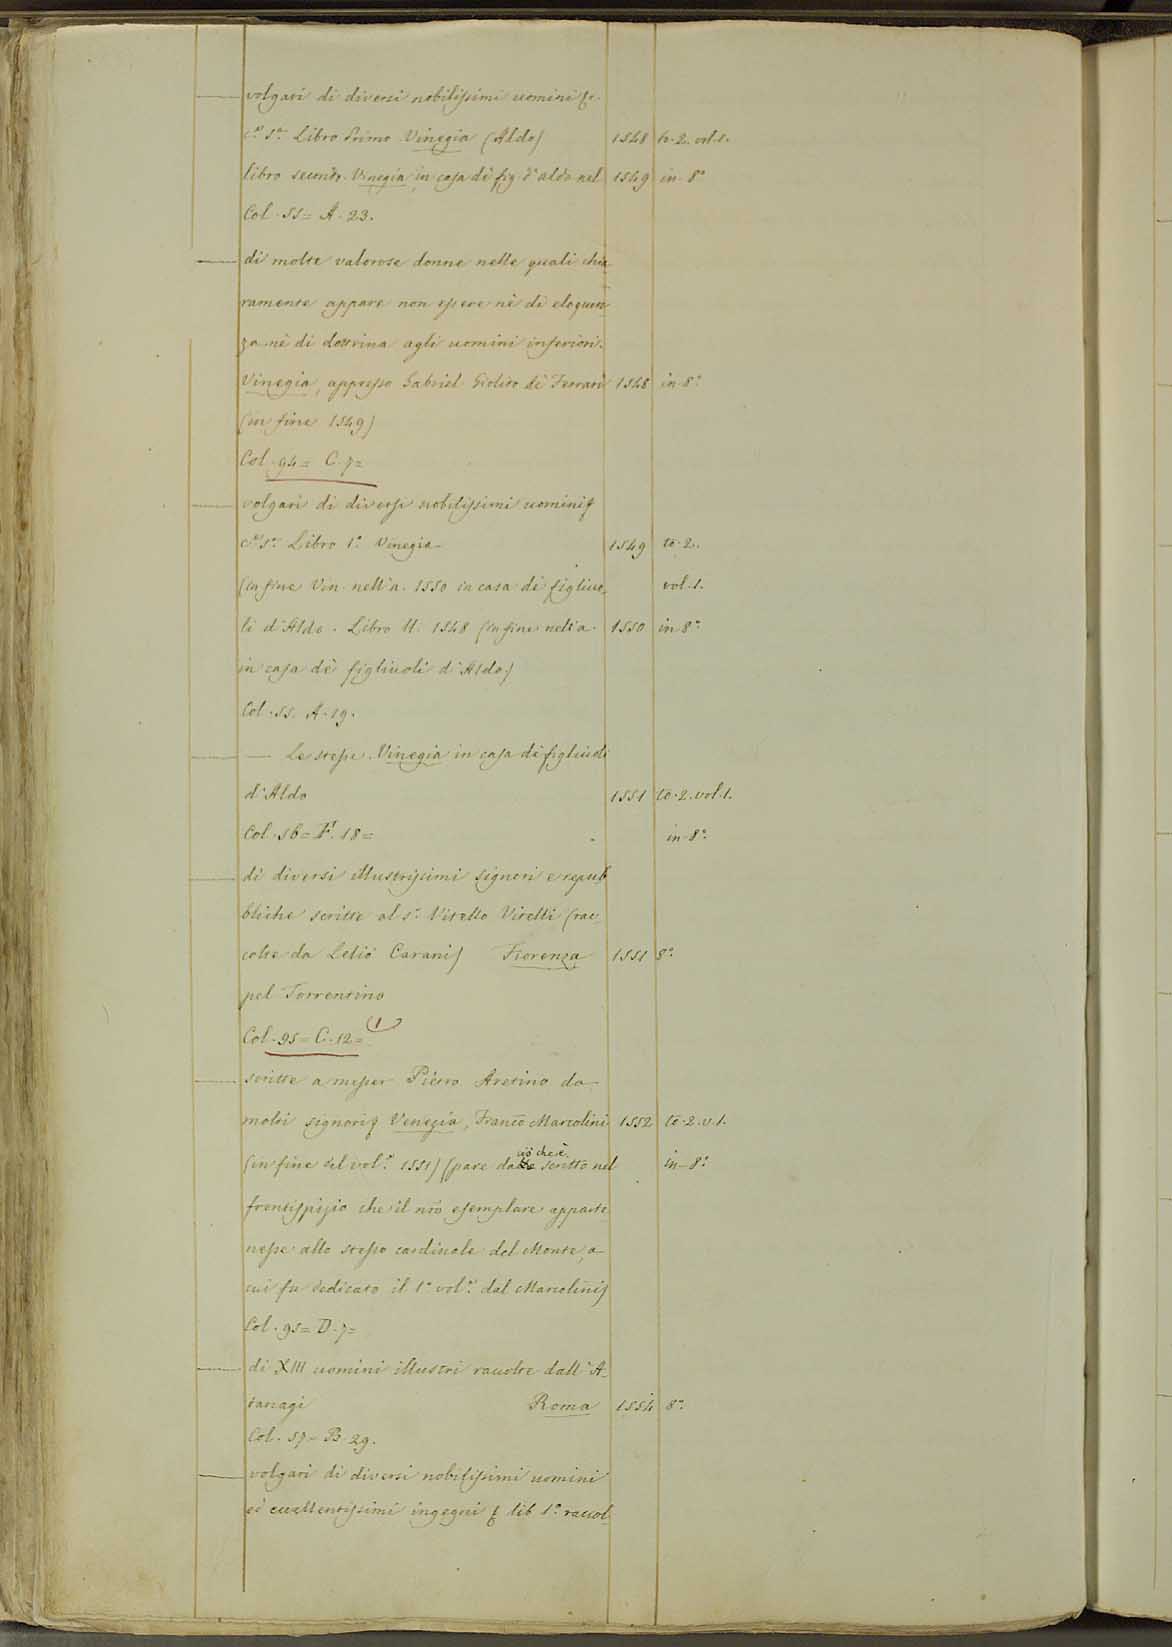 — volgari di diversi nobilissimi uomini &c.
c.ª s.ª Libro Primo Vinegia (Aldo) 1548 to. 2. vol. 1.
libro secondo Vinegia in casa dè fig. d'aldo nel 1549 in 8.º
Col. 55 = A. 23.
— di molte valorose donne nelle quali chia
ramente appare non essere nè di eloquen
za nè di dottrina agli uomini inferiori.
Vinegia, appresso Gabriel Giolito dè Ferrari 1548 in 8.º
(in fine 1549)
Col. 94 = C. 7 =
— volgari di diversi nobilissimi uomini &
c.ª s.ª Libro 1.º Vinegia 1549 to. 2.
(in fine Vin. nell'a. 1550 in casa dè figliuo- vol. 1.
li d'Aldo. Libro II. 1548 (in fine nell'a. 1550 in 8.º
in casa dè figliuoli d'Aldo)
Col. 55. A. 19.
— — Le stesse. Vinegia in casa dè figliuoli
d'Aldo 1551 to. 2. vol. 1.
Col. 56 = F. 18 = in 8.º
— di diversi illustrissimi signori e repub
bliche scritte al s.r Vitello Vitelli (rac-
colte da Lelio Carani) Fiorenza 1551 8.º
pel Torrentino
Col. 95 = C. 12 = (1
— scritte a messer Pietro Aretino da
molti signori & Venezia, Franc.o Marcolini 1552 to. 2. v. 1.
(in fine del vol.º 1551) (pare da ciò che è scritto nel in 8.º
frontispizio che il nr̃o esemplare apparte-
nesse allo stesso cardinale del Monte, a
cui fu dedicato il 1.º vol.º dal Marcolini)
Col. 95 = D. 7 =
— di XIII uomini illustri raccolte dall'A-
tanagi Roma 1554 8.º
Col. 57 = B. 29.
— volgari di diversi nobilissimi uomini
ed eccellentissimi ingegni & lib. 1.º raccol-